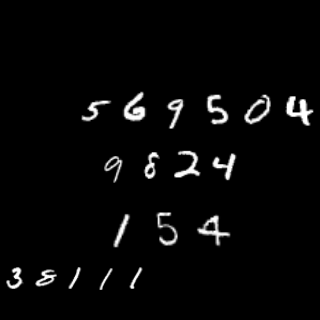 569504
9824
154
38111